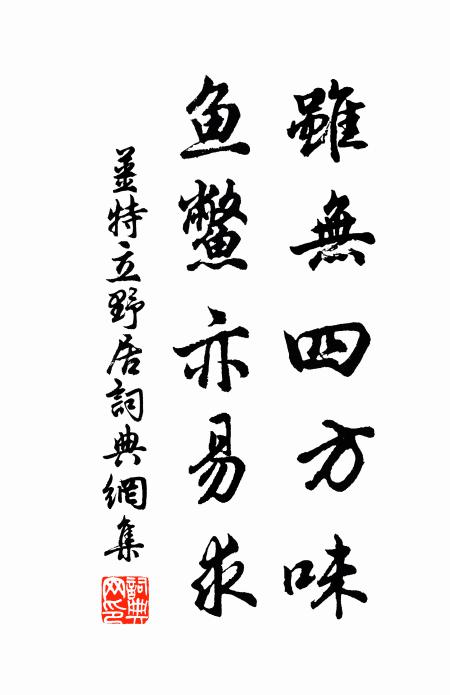 雖無四方味
鱼鱉亦易求
薑特立野居詞典網集
詞典网印